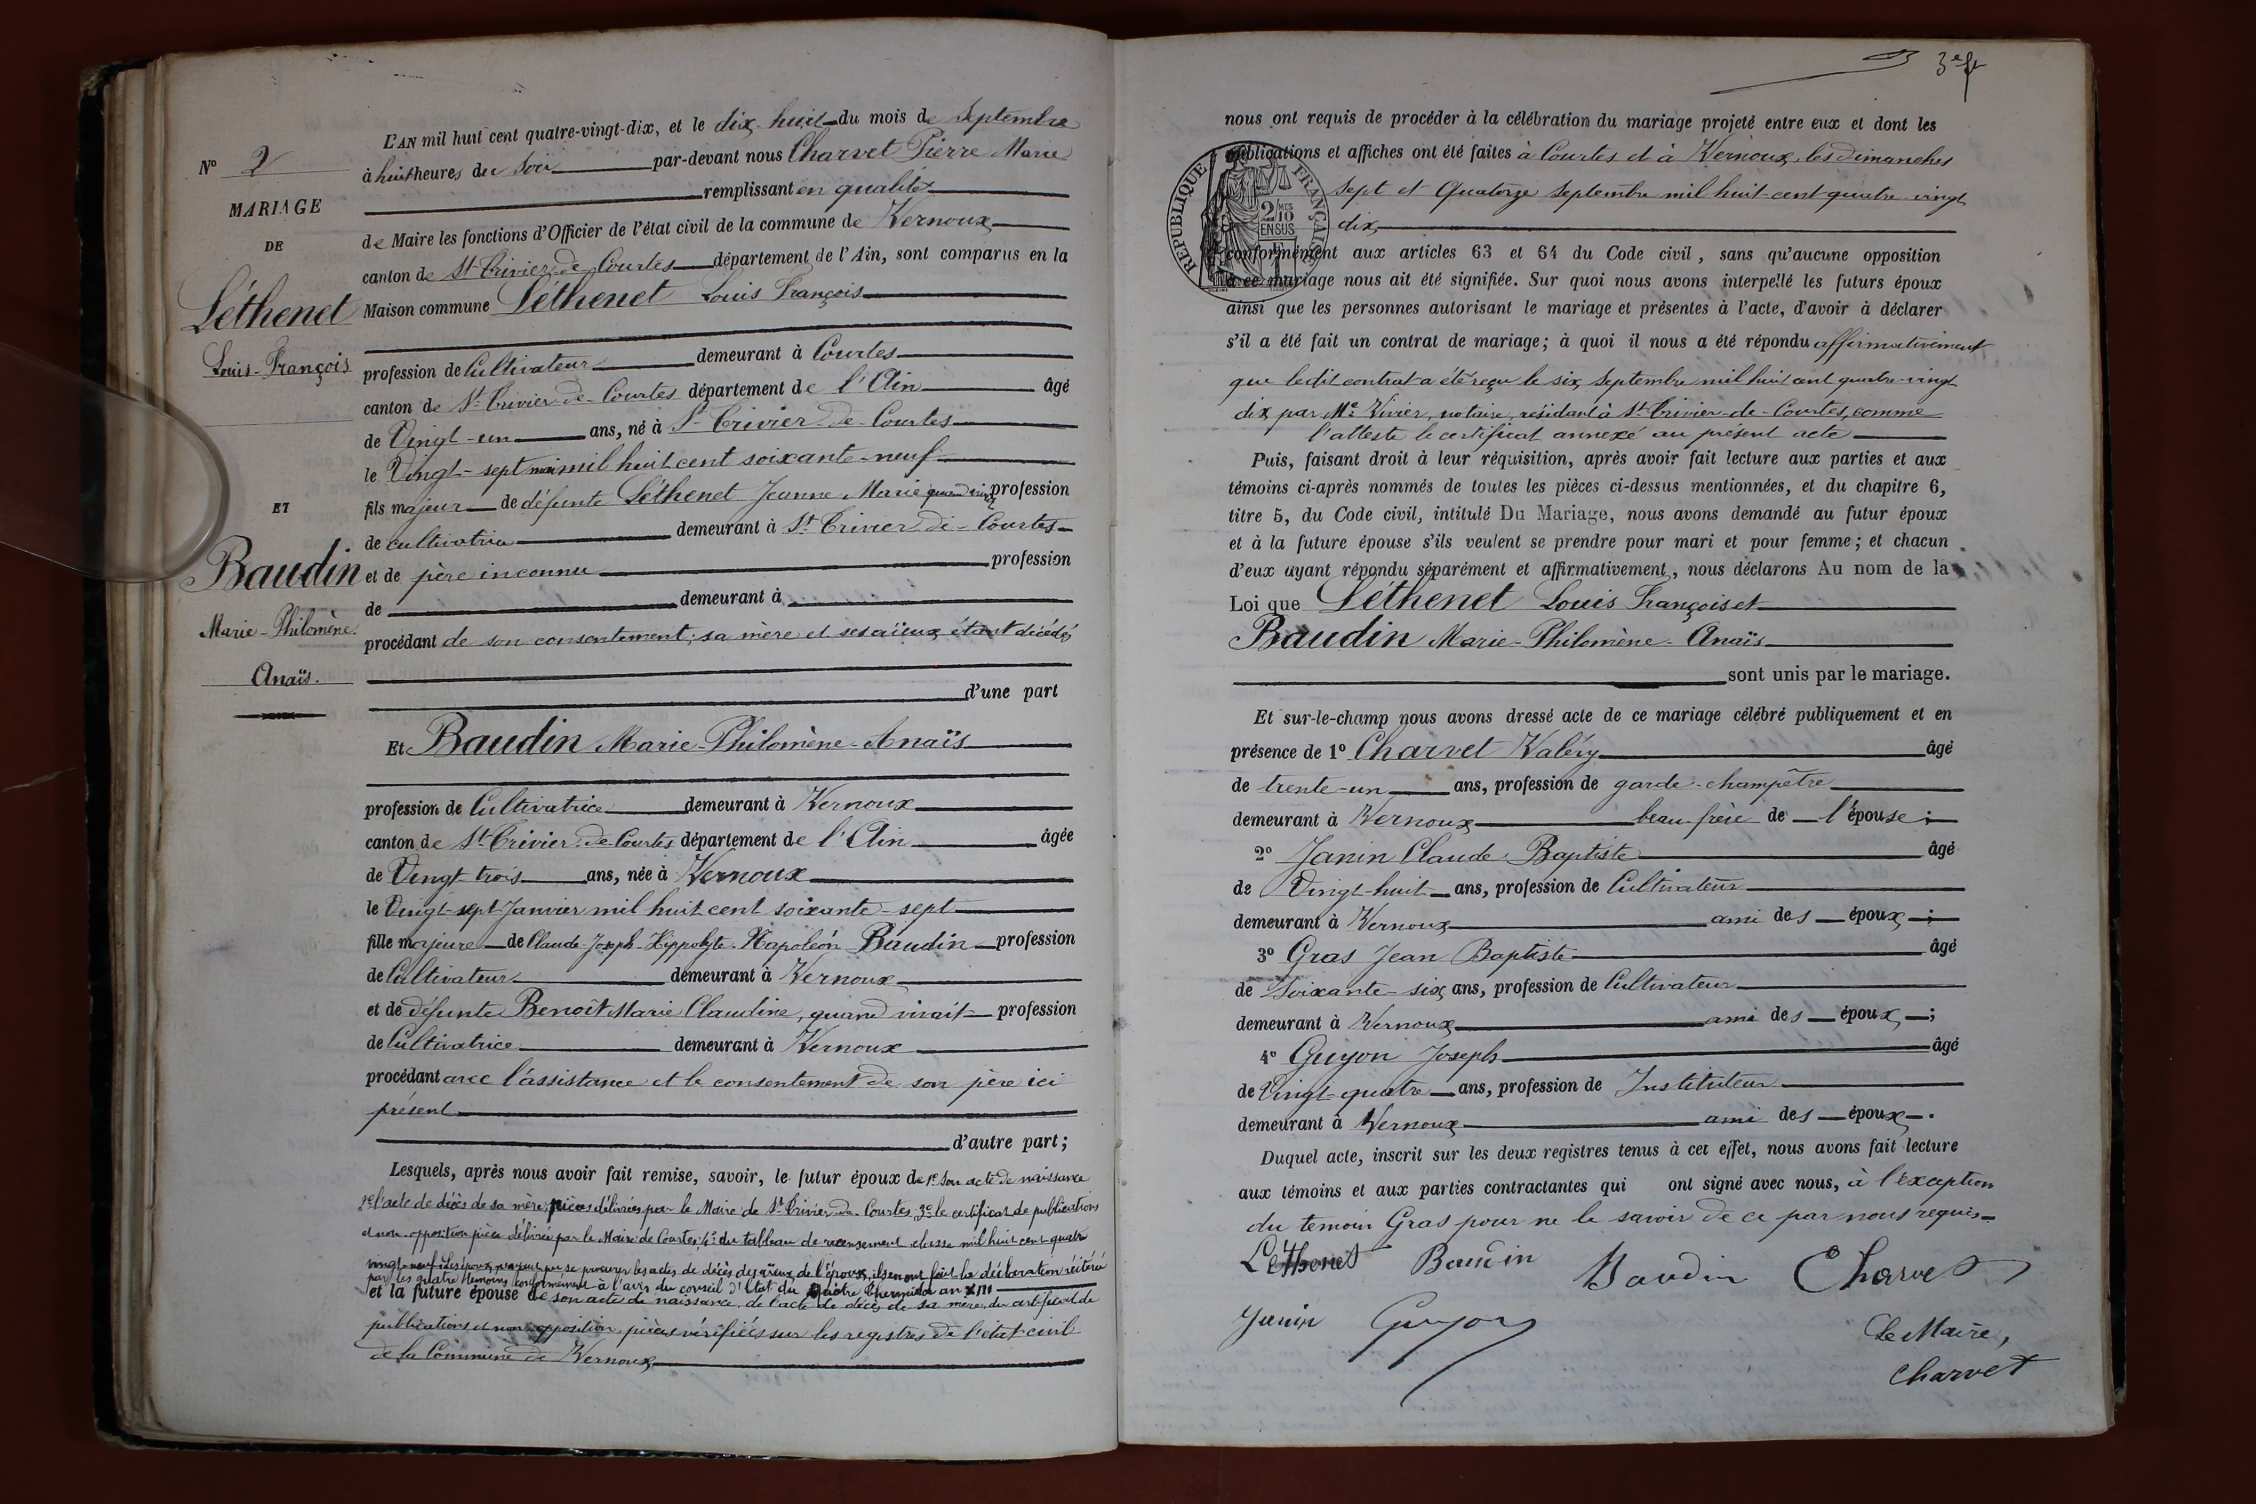 N° 2
MARIAGE
DE
Léthenet
Louis-François
ET
Baudin
Marie-Philomène
Anaïs.
L'AN mil huit cent quatre-vingt-dix, et le dix-huit du mois de Septembre
à huit heures du Soir par-devant nous Charvet Pierre Marie
remplissant en qualité
de Maire les fonctions d'Officier de l'état civil de la commune de Vernoux
canton de St Trivier-de-Courtes département de l'Ain, sont comparus en la
Maison commune Léthenet Louis François
profession de Cultivateur demeurant à Courtes
canton de St-Trivier-de-Courtes département de l'Ain âgé
de Vingt-un ans, né à St-Trivier-de-Courtes
le Vingt-sept mai mil huit cent soixante-neuf
fils majeur de défunte Léthenet Jeanne Marie quand vivait profession
de cultivatrice demeurant à St Trivier-de-Courtes
et de père inconnu profession
de demeurant à
procédant de son consentement, sa mère et ses aïeux étant décédés
d'une part
Et Baudin Marie-Philomène-Anaïs
profession de Cultivatrice demeurant à Vernoux
canton de St-Trivier-de-Courtes département de l'Ain âgée
de Vingt-trois ans, née à Vernoux
le Vingt-sept Janvier mil huit cent soixante-sept
fille majeure de Claude-Joseph-Hippolyte-Napoléon Baudin profession
de Cultivateur demeurant à Vernoux
et de défunte Benoît Marie Claudine, quand vivait profession
de Cultivatrice demeurant à Vernoux
procédant avec l'assistance et le consentement de son père ici
présent
d'autre part;
Lesquels, après nous avoir fait remise, savoir, le futur époux de 1° son acte de naissance
2° l'acte de décès de sa mère, pièces délivrées par le Maire de St Trivier-de-Courtes, 3° le certificat de publications
et non-opposition pièce délivrée par le Maire de Courtes, 4° du tableau de recensement classe mil huit cent quatre
vingt-neuf. Les époux n'ayant pu se procurer les actes de décès des aïeux de l'époux, ils en ont fait la déclaration réitérée
par les quatre témoins conformément à l'avis du conseil d'Etat du quatre thermidor an XIII
et la future épouse de son acte de naissance, de l'acte de décès de sa mère, du certificat de
publications et non opposition, pièces vérifiées sur les registres de l'état-civil
de la Commune de Vernoux
3e
nous ont requis de procéder à la célébration du mariage projeté entre eux et dont les
publications et affiches ont été faites à Courtes et à Vernoux, les dimanches
sept et Quatorze Septembre mil huit-cent quatre-vingt
dix
RÉPUBLIQUE FRANÇAISE
2/10 MES
EN SUS
conformément aux articles 63 et 64 du Code civil, sans qu'aucune opposition
à ce mariage nous ait été signifiée. Sur quoi nous avons interpellé les futurs époux
ainsi que les personnes autorisant le mariage et présentes à l'acte, d'avoir à déclarer
s'il a été fait un contrat de mariage; à quoi il nous a été répondu affirmativement
que ledit contrat a été reçu le six Septembre mil huit cent quatre-vingt
dix par Me Vivier, notaire, résidant à St-Trivier-de-Courtes, comme
l'atteste le certificat annexé au présent acte
Puis, faisant droit à leur réquisition, après avoir fait lecture aux parties et aux
témoins ci-après nommés de toutes les pièces ci-dessus mentionnées, et du chapitre 6,
titre 5, du Code civil, intitulé Du Mariage, nous avons demandé au futur époux
et à la future épouse s'ils veulent se prendre pour mari et pour femme; et chacun
d'eux ayant répondu séparément et affirmativement, nous déclarons Au nom de la
Loi que Léthenet Louis François et
Baudin Marie-Philomène-Anaïs
sont unis par le mariage.
Et sur-le-champ nous avons dressé acte de ce mariage célébré publiquement et en
présence de 1° Charvet Valéry âgé
de trente-un ans, profession de garde-champêtre
demeurant à Vernoux beau-frère de l'épouse;
2° Janin Claude Baptiste âgé
de Vingt-huit ans, profession de Cultivateur
demeurant à Vernoux ami des époux;
3° Gras Jean Baptiste âgé
de Soixante-six ans, profession de Cultivateur
demeurant à Vernoux ami des époux;
4° Guyon Joseph âgé
de Vingt-quatre ans, profession de Instituteur
demeurant à Vernoux ami des époux.
Duquel acte, inscrit sur les deux registres tenus à cet effet, nous avons fait lecture
aux témoins et aux parties contractantes qui ont signé avec nous, à l'exception
du temoin Gras pour ne le savoir de ce par nous requis
Léthenet Baudin Baudin Charvet
Janin Guyon
Le Maire,
Charvet